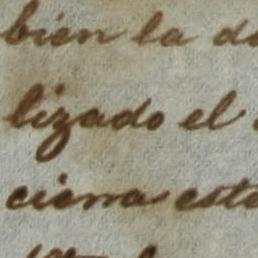 bien la de
lizado el
cierra este